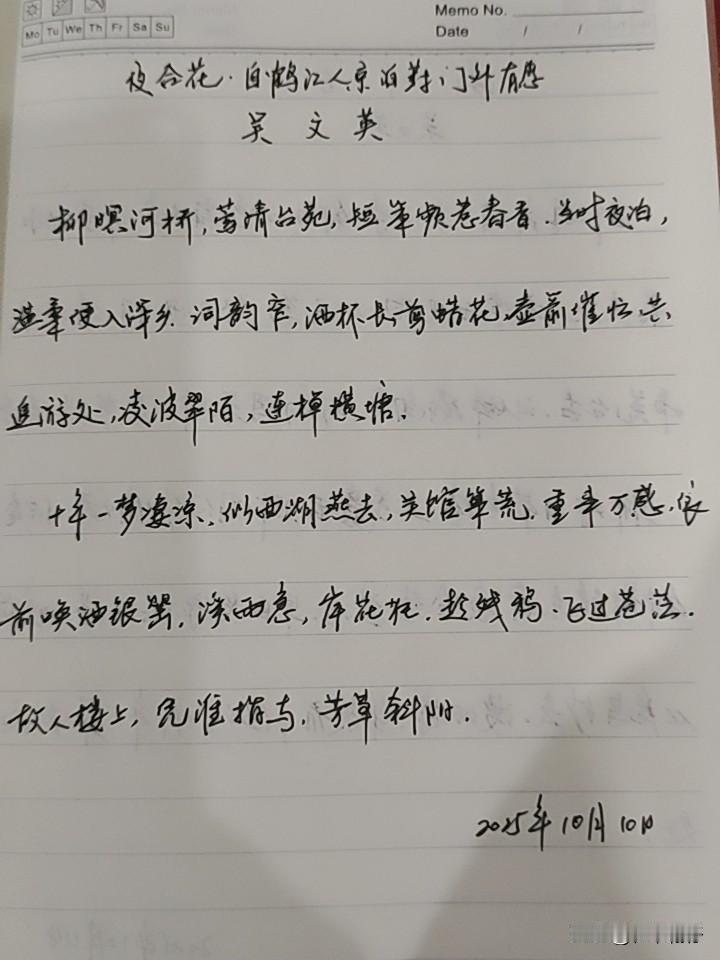 Memo No.
Mo Tu We Th Fr Sa Su
Date / /
夜合花·自鹤江入京泊葑门外有感
吴文英
柳暝河桥,莺清台苑,短策频惹春香.当时夜泊,
温柔便入深乡.词韵窄,酒杯长,剪蜡花,壶箭催忙.共
追游处,凌波翠陌,连棹横塘.
十年一梦凄凉.似西湖燕去,吴馆巢荒.重来万感,依
前唤酒银罂.溪雨急,岸花狂.趁残鸦、飞过苍茫.
故人楼上,凭谁指与,芳草斜阳.
2025年10月10日